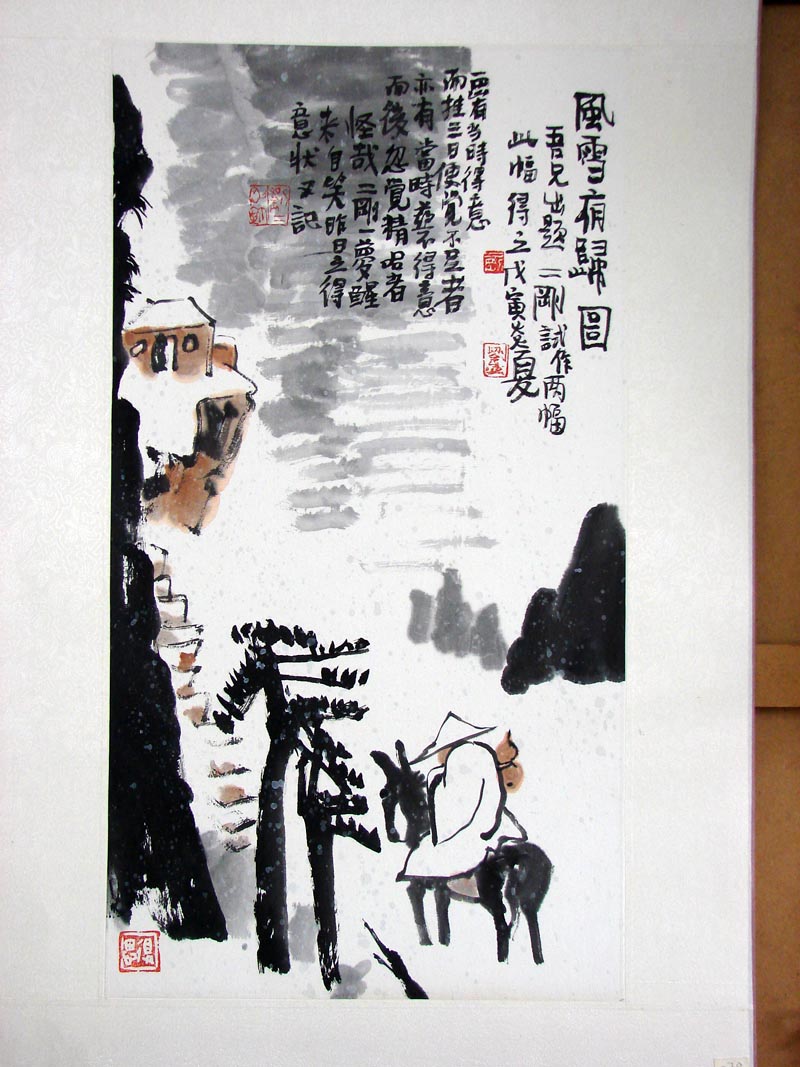 風雪夜歸圖
吾兄出題二剛試作兩幅
此幅得之戊寅炎夏
畫有當時得意
而挂三日便覺不足者
亦有當時並不得意
而後忽覺精唱者
怪哉二剛一夢醒
来自笑昨日之得
意状又記